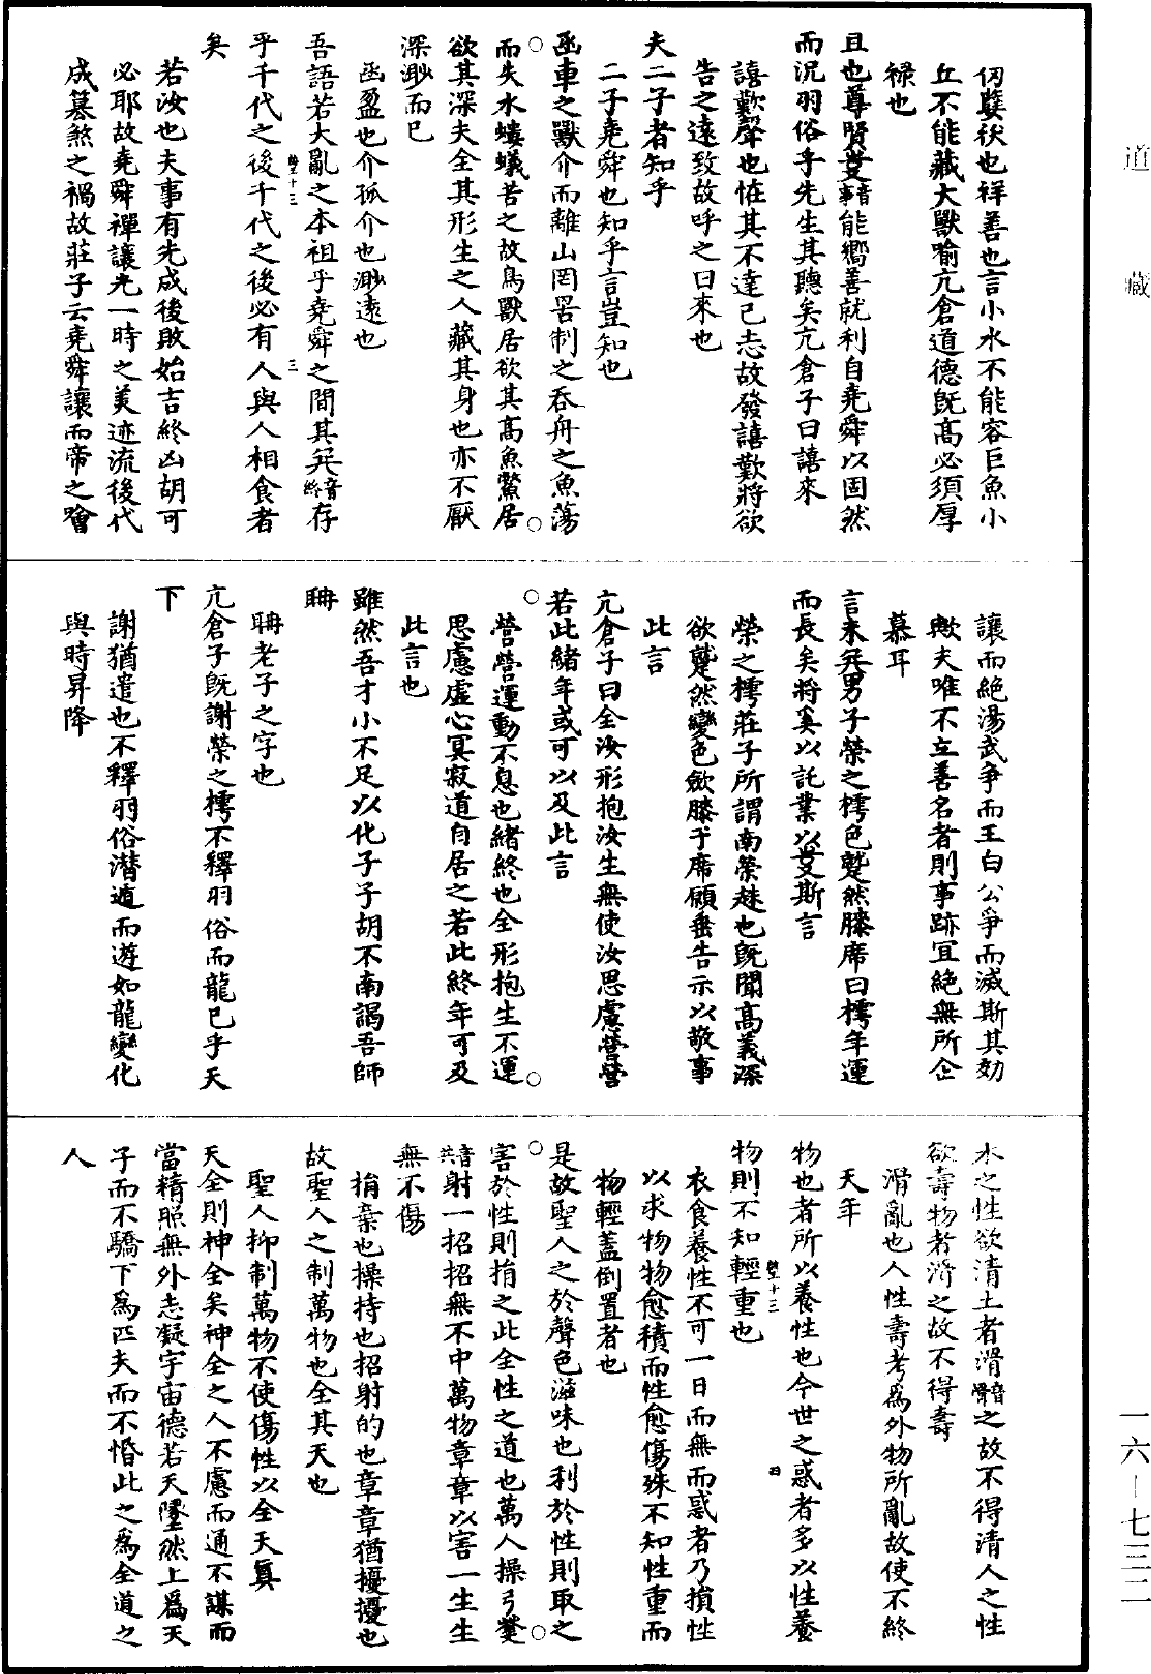 仭孽袄也祥善也言小水不能容巨魚小
丘不能藏大獸喻亢倉道德旣高必須厚
祿也
且也尊賢㕛音事能嚮善就利自堯舜以固然
而况羽俗乎先生其聽矣亢倉子曰譆來
譆歎聲也恠其不達己志故發譆歎將欲
告之遠致故呼之曰來也
夫二子者知乎
二子堯舜也知乎言豈知也
凾車之獸介而離山罔罟制之吞舟之魚蕩
而失水螻蟻苦之故鳥獸居欲其高魚鱉居
欲其深夫全其形生之人藏其身也亦不厭
深渺而已
凾盈也介孤介也渺遠也
吾語若大亂之本祖乎堯舜之間其兂音終存
乎千代之後千代之後必有人與人相食者
矣
若汝也夫事有先成後敗始吉終凶胡可
必耶故堯舜禪讓光一時之美迹流後代
成簒煞之禍故莊子云堯舜讓而帝之噲
讓而絶湯武爭而王白公爭而滅斯其効
歟夫唯不立善名者則事跡冝絶無所企
慕耳
言未兂男子榮之樗色蹵然膝席曰樗年運
而長矣將奚以託業以㕛斯言
榮之樗莊子所謂南榮趎也旣聞高義深
欲蹵然變色歛膝于席願垂告示以敬事
此言
亢倉子曰全汝形抱汝生無使汝思慮營營
若此緒年或可以及此言
營營運動不息也緒終也全形抱生不運
思慮虛心冥寂道自居之若此終年可及
此言也
雖然吾才小不足以化子子胡不南謁吾師
聃
聃老子之字也
亢倉子旣謝榮之樗不釋羽俗而龍已乎天
下
謝猶遣也不釋羽俗潜遁而遊如龍變化
與時昇降
水之性欲清土者滑音骨之故不得清人之性
欲壽物者滑之故不得壽
滑亂也人性壽考爲外物所亂故使不終
天年
物也者所以養性也今世之惑者多以性養
物則不知輕重也
衣食養性不可一日而無而惑者乃損性
以求物物愈積而性愈傷殊不知性重而
物輕蓋倒置者也
是故聖人之於聲色滋味也利於性則取之
害於性則捐之此全性之道也萬人操弓㢡
音共射一招招無不中萬物章章以害一生生
無不傷
捐棄也操持也招射的也章章猶擾擾也
故聖人之制萬物也全其天也
聖人抑制萬物不使傷性以全天眞
天全則神全矣神全之人不慮而通不謀而
當精照無外志凝宇宙德若天墬然上爲天
子而不驕下爲匹夫而不惛此之爲全道之
人
道藏
一六―七三二